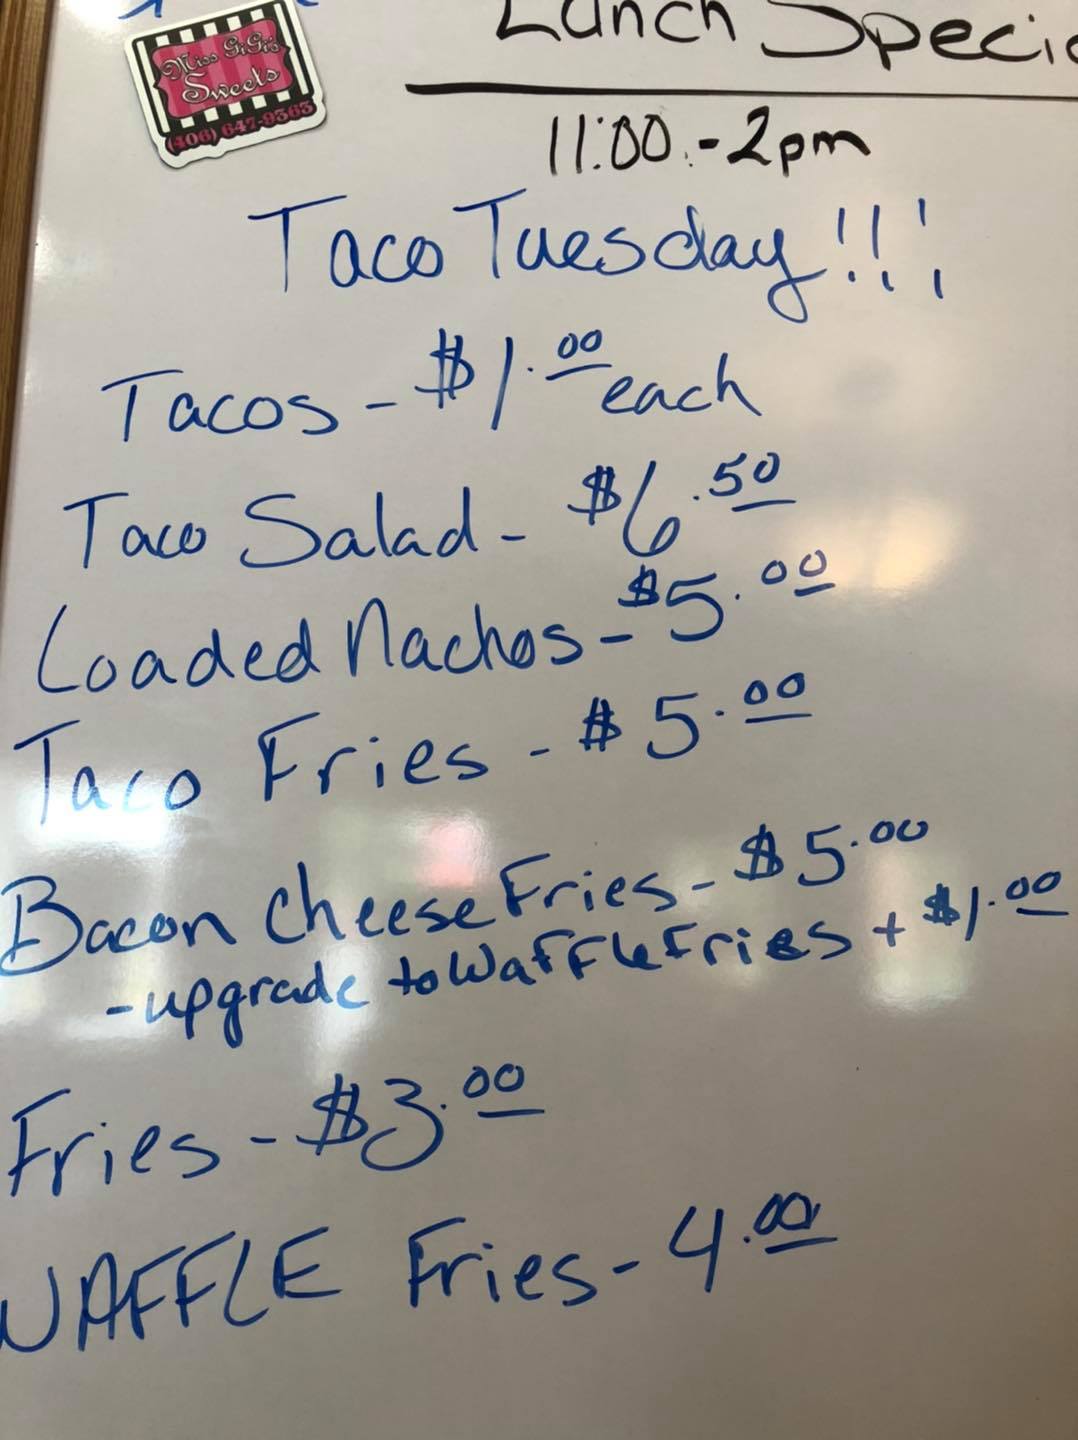 Lunch
Miss GiGi's
Sweets
(406) 647-9363
11:00 - 2pm
Taco Tuesday!!!
Tacos - $1.00 each
Taco Salad - $6.50
Loaded Nachos - $5.00
Taco Fries - $5.00
Bacon Cheese Fries - $5.00
- upgrade to Waffle Fries + $1.00
Fries - $3.00
WAFFLE Fries - 4.00